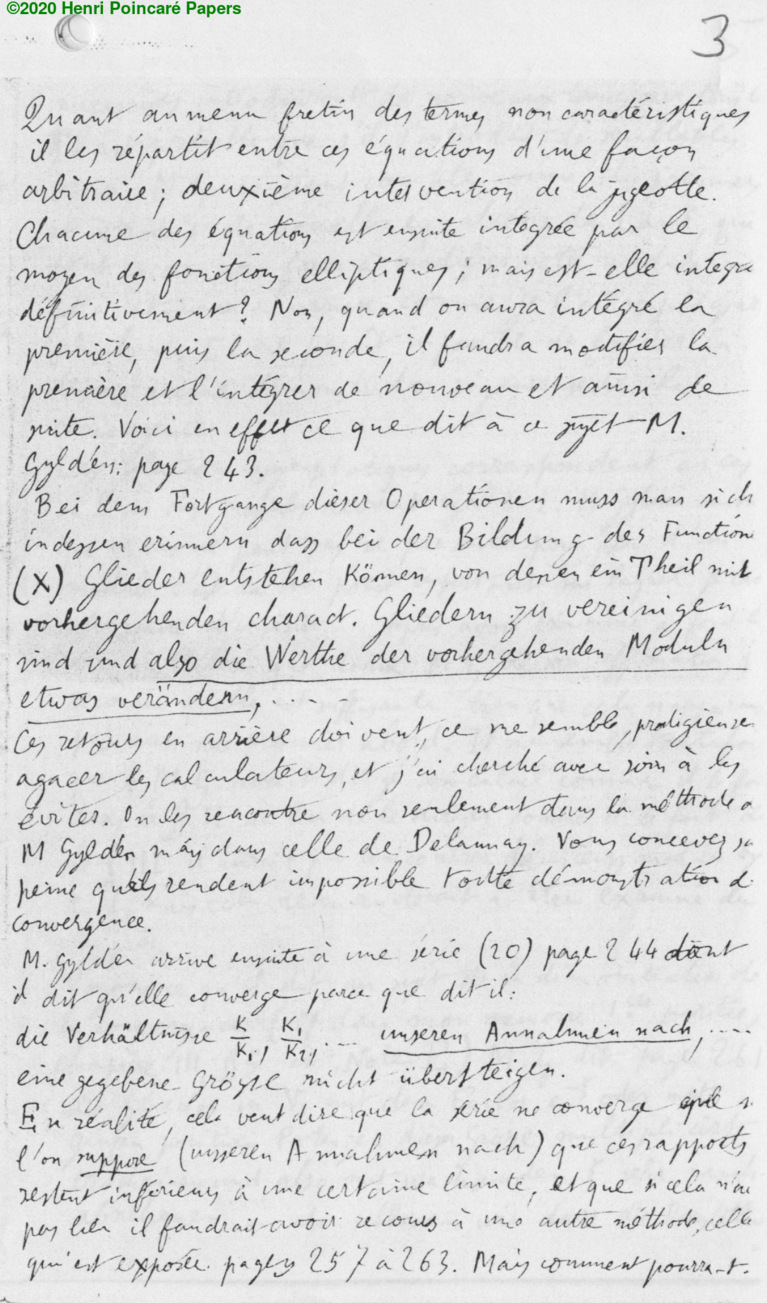 ©2020 Henri Poincaré Papers
3
Quant au menu fretin des termes non caractéristiques
il les répartit entre ces équations d'une façon
arbitraire ; deuxième intervention de la jugeotte.
Chacune des équations est ensuite integrée par le
moyen des fonctions elliptiques ; mais est-elle integré
définitivement ? Non, quand on aura intégré la
première, puis la seconde, il faudra modifier la
première et l'intégrer de nouveau et ainsi de
suite. Voici en effet ce que dit à ce sujet M.
Gyldén: page 243.
Bei dem Fortgange dieser Operationen muss man sich
indessen erinnern dass bei der Bildung der Function
(X) Glieder entstehen Können, von denen ein Theil mit
vorhergehenden charact. Gliedern zu vereinigen
sind und also die Werthe der vorhergehenden Moduln
etwas verändern, .....
Ces retours en arrière doivent, ce me semble, prodigieuse
agacer les calculateurs, et j'ai cherché avec soin à les
éviter. On les rencontre non seulement dans la méthode
M Gyldén mais dans celle de Delaunay. Vous concevez
peine qu'ils rendent impossible toute démonstration d
convergence.
M. Gyldén arrive ensuite à une série (20) page 244 dont
il dit qu'elle converge parce que dit il:
die Verhältnisse K/K₁, K₁/K₂, ... unseren Annahmen nach, ....
eine gegebene Grösse nicht übersteigen.
En réalité, cela veut dire que la série ne converge que s
l'on suppose (unseren Annahmen nach) que ces rapports
restent inférieurs à une certaine limite, et que si cela n'a
pas lieu il faudrait avoir recours à une autre méthode, celle
qui est exposée pages 257 à 263. Mais comment pourra-t-